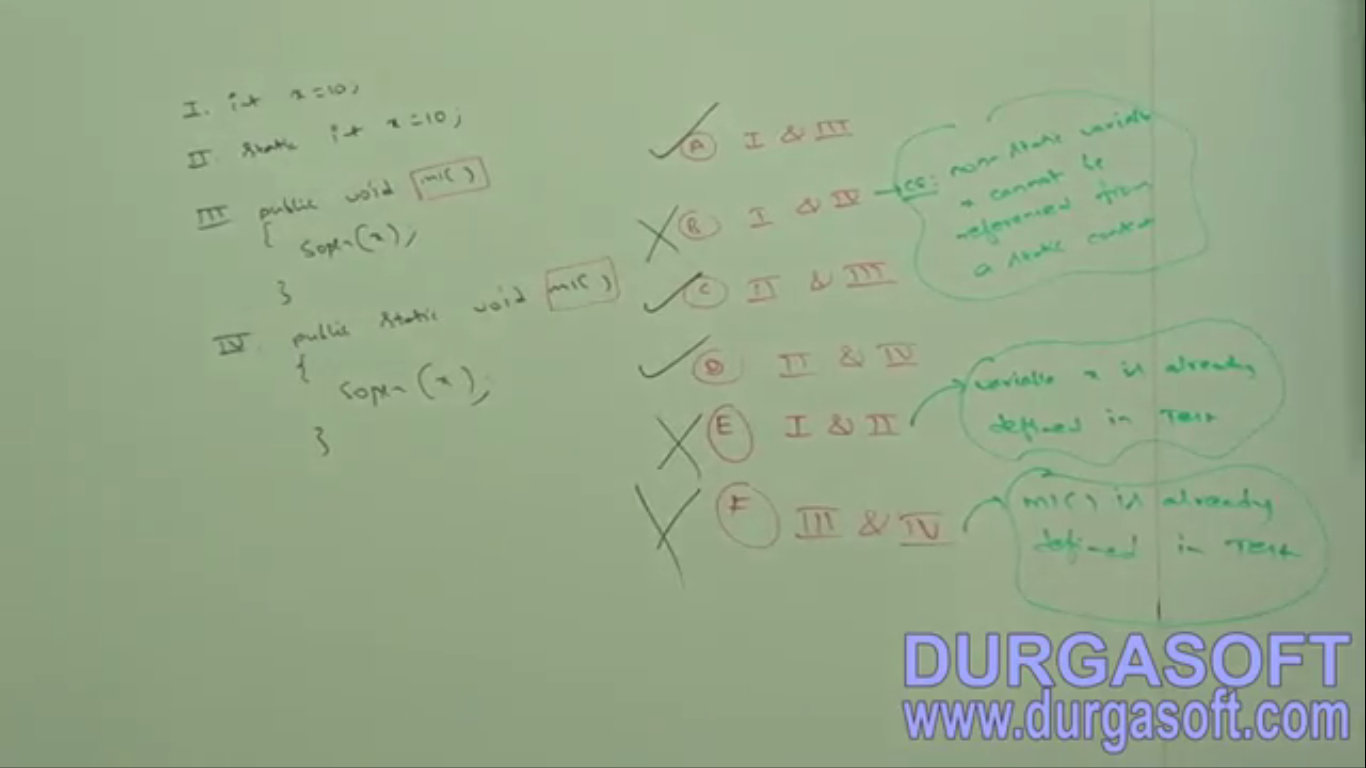 I. int x=10;
II. static int x=10;
III public void m1()
{
sopln(x);
}
IV. public static void m1()
{
sopln(x);
}
A I & III
B I & IV → CE: non-static variable
x cannot be
referenced from
a static context
C II & III
D II & IV
E I & II
variable x is already
defined in Test
F III & IV
m1() is already
defined in Test
DURGASOFT
www.durgasoft.com